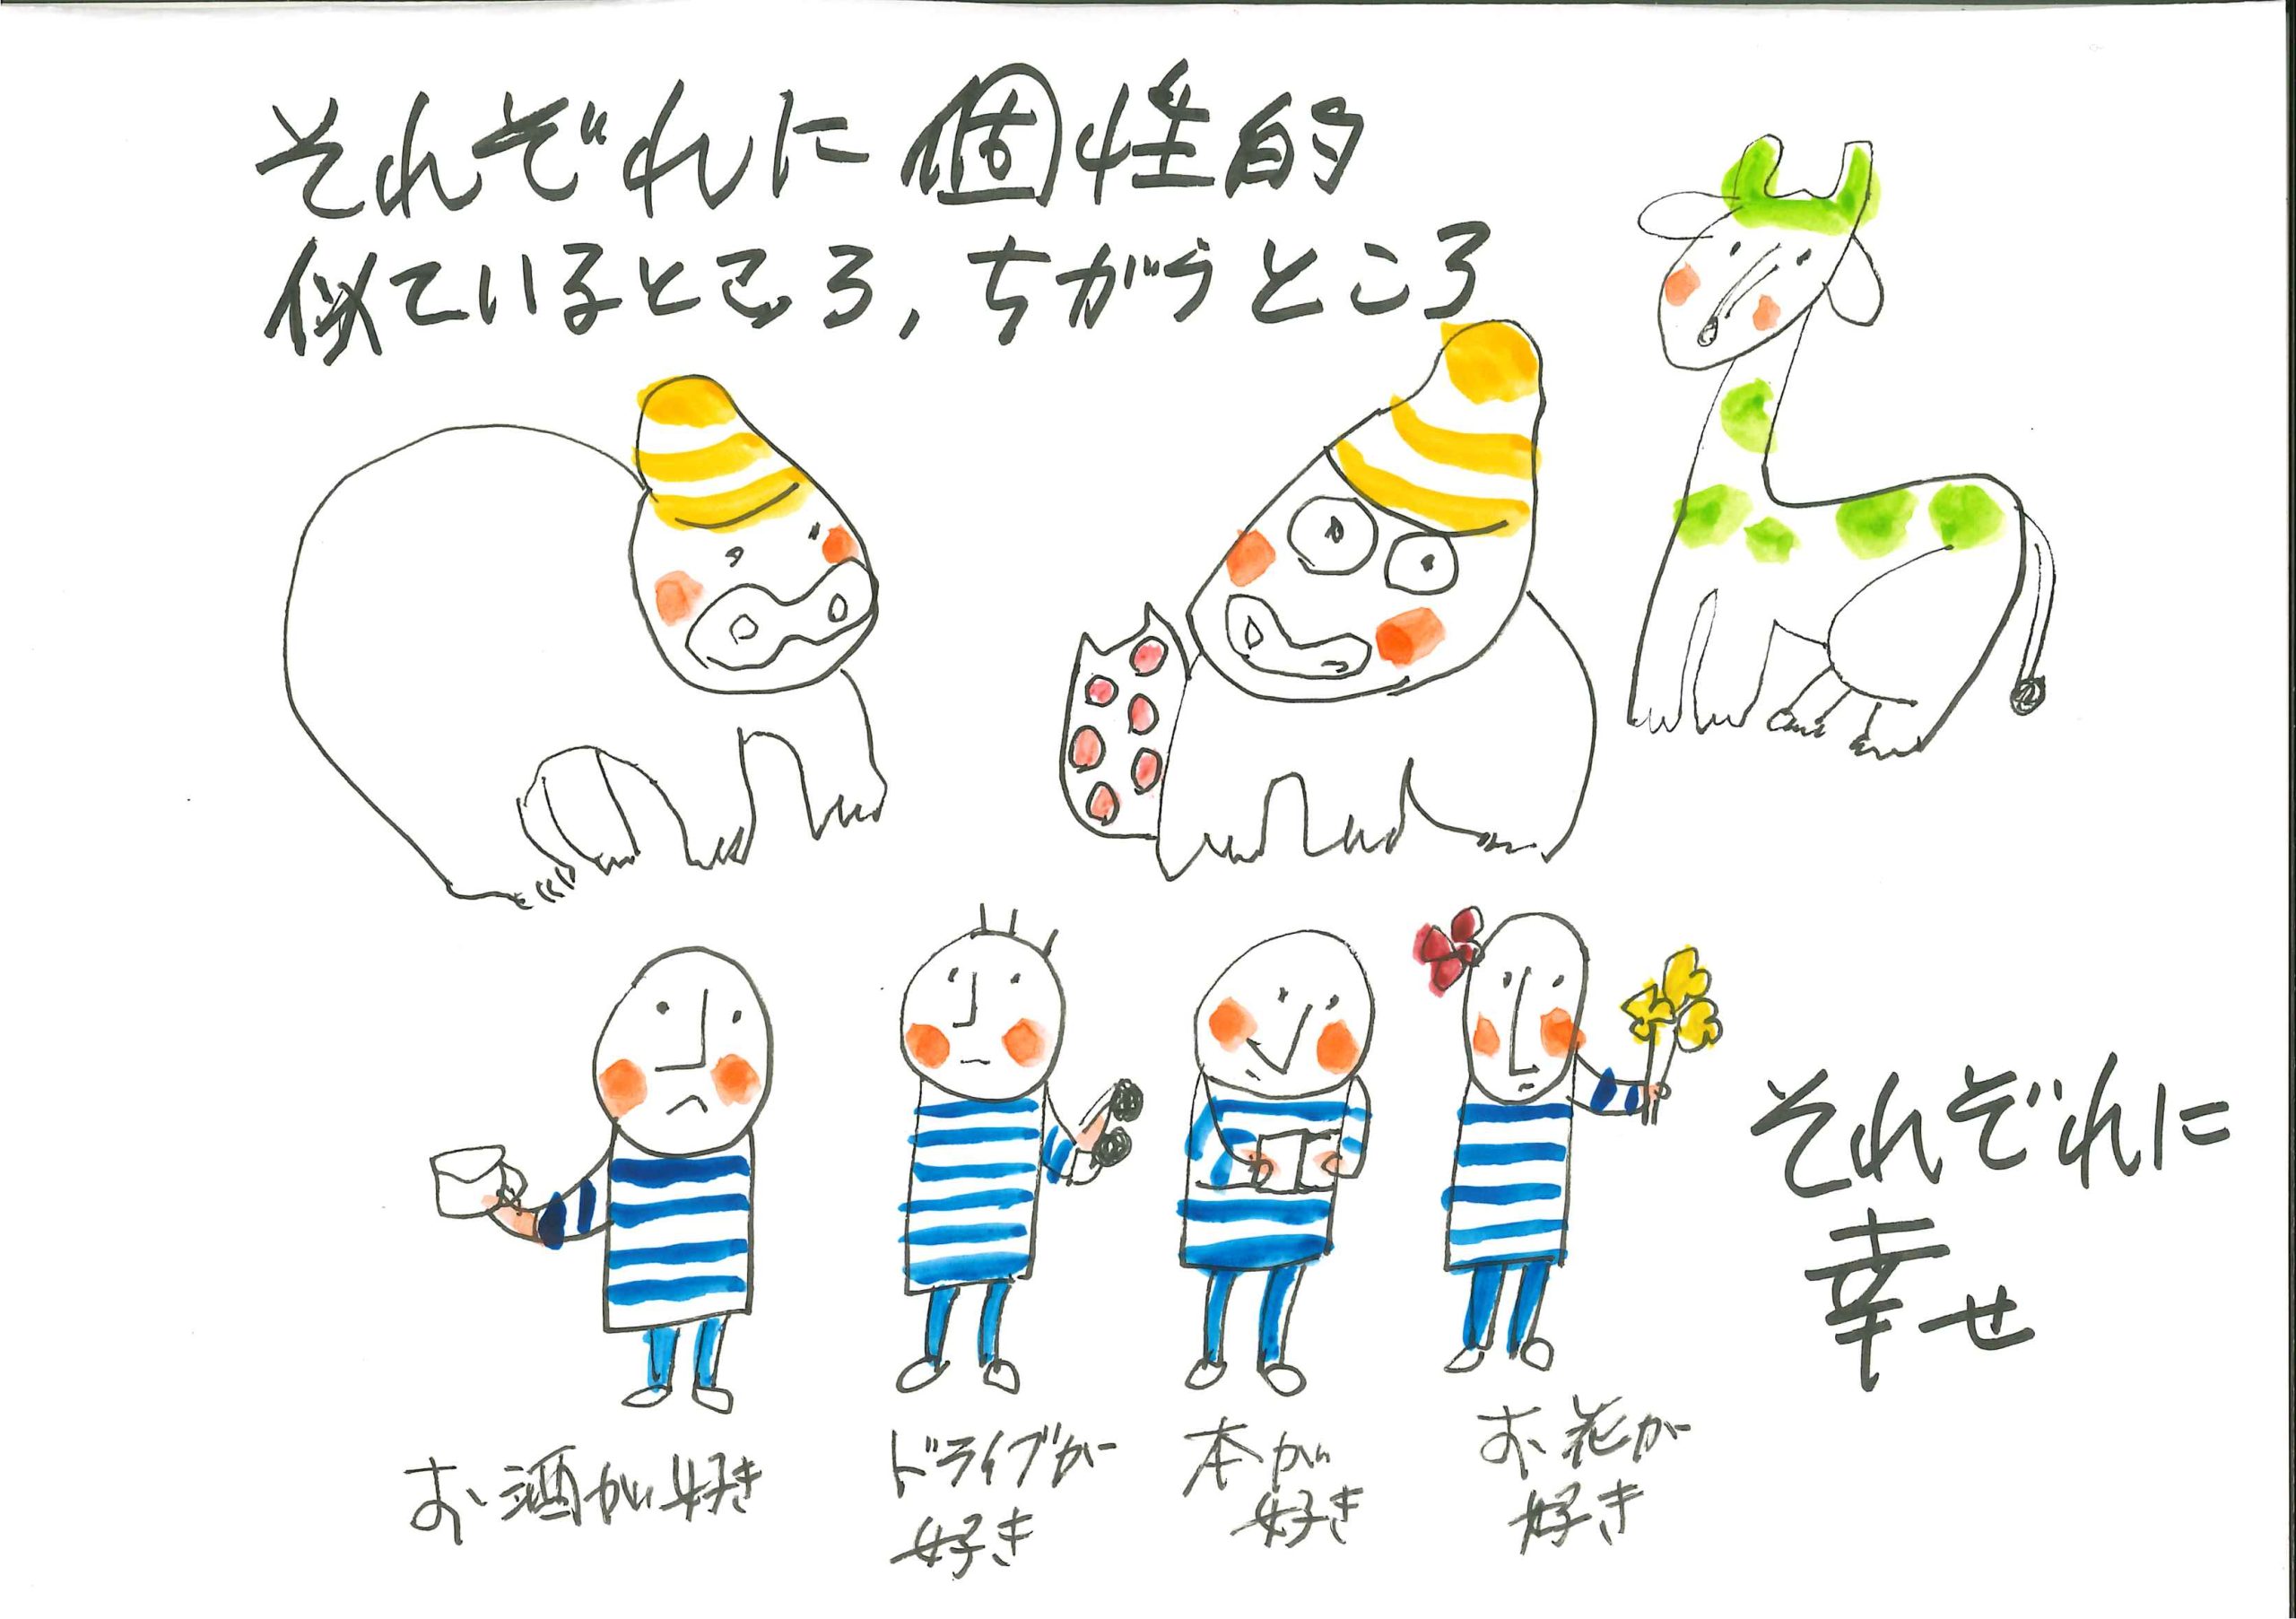 それぞれに個性的
似ているところ,ちがうところ
お酒が好き
ドライブが
好き
本が
好き
お花が
好き
それぞれに
幸せ